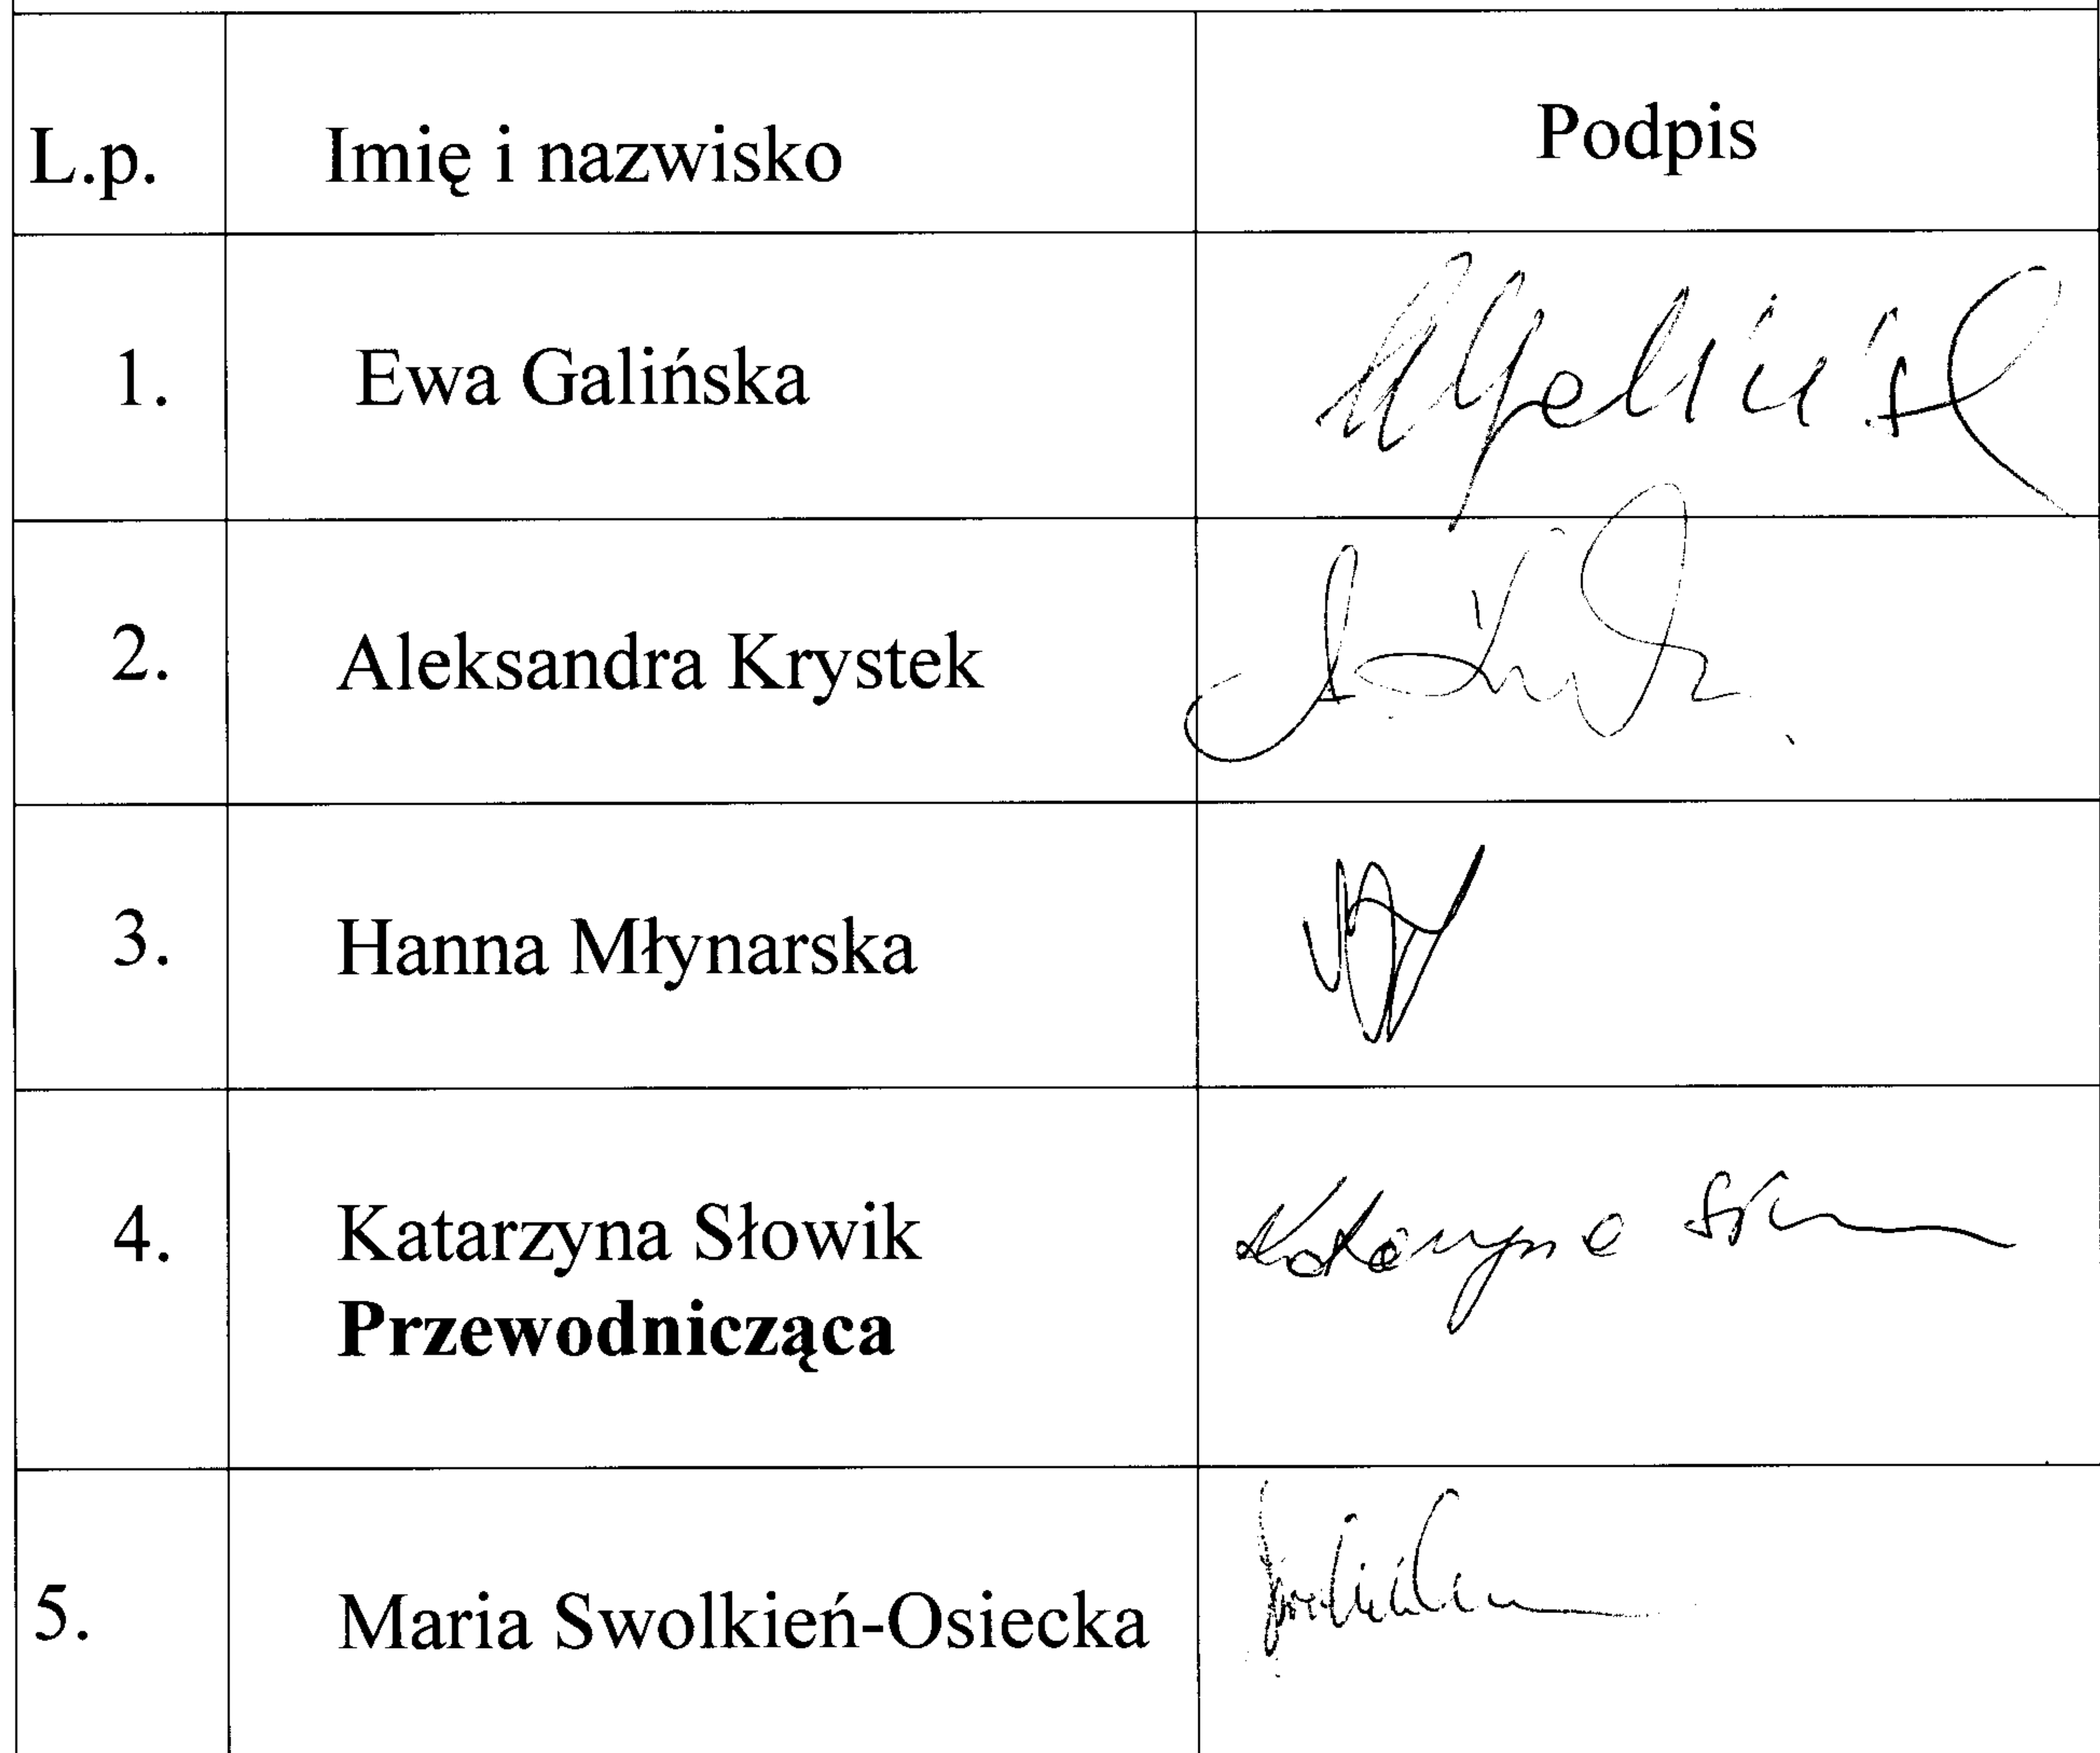 L.p. Imię i nazwisko Podpis
1. Ewa Galińska
2. Aleksandra Krystek
3. Hanna Młynarska
4. Katarzyna Słowik
Przewodnicząca
5. Maria Swolkień-Osiecka